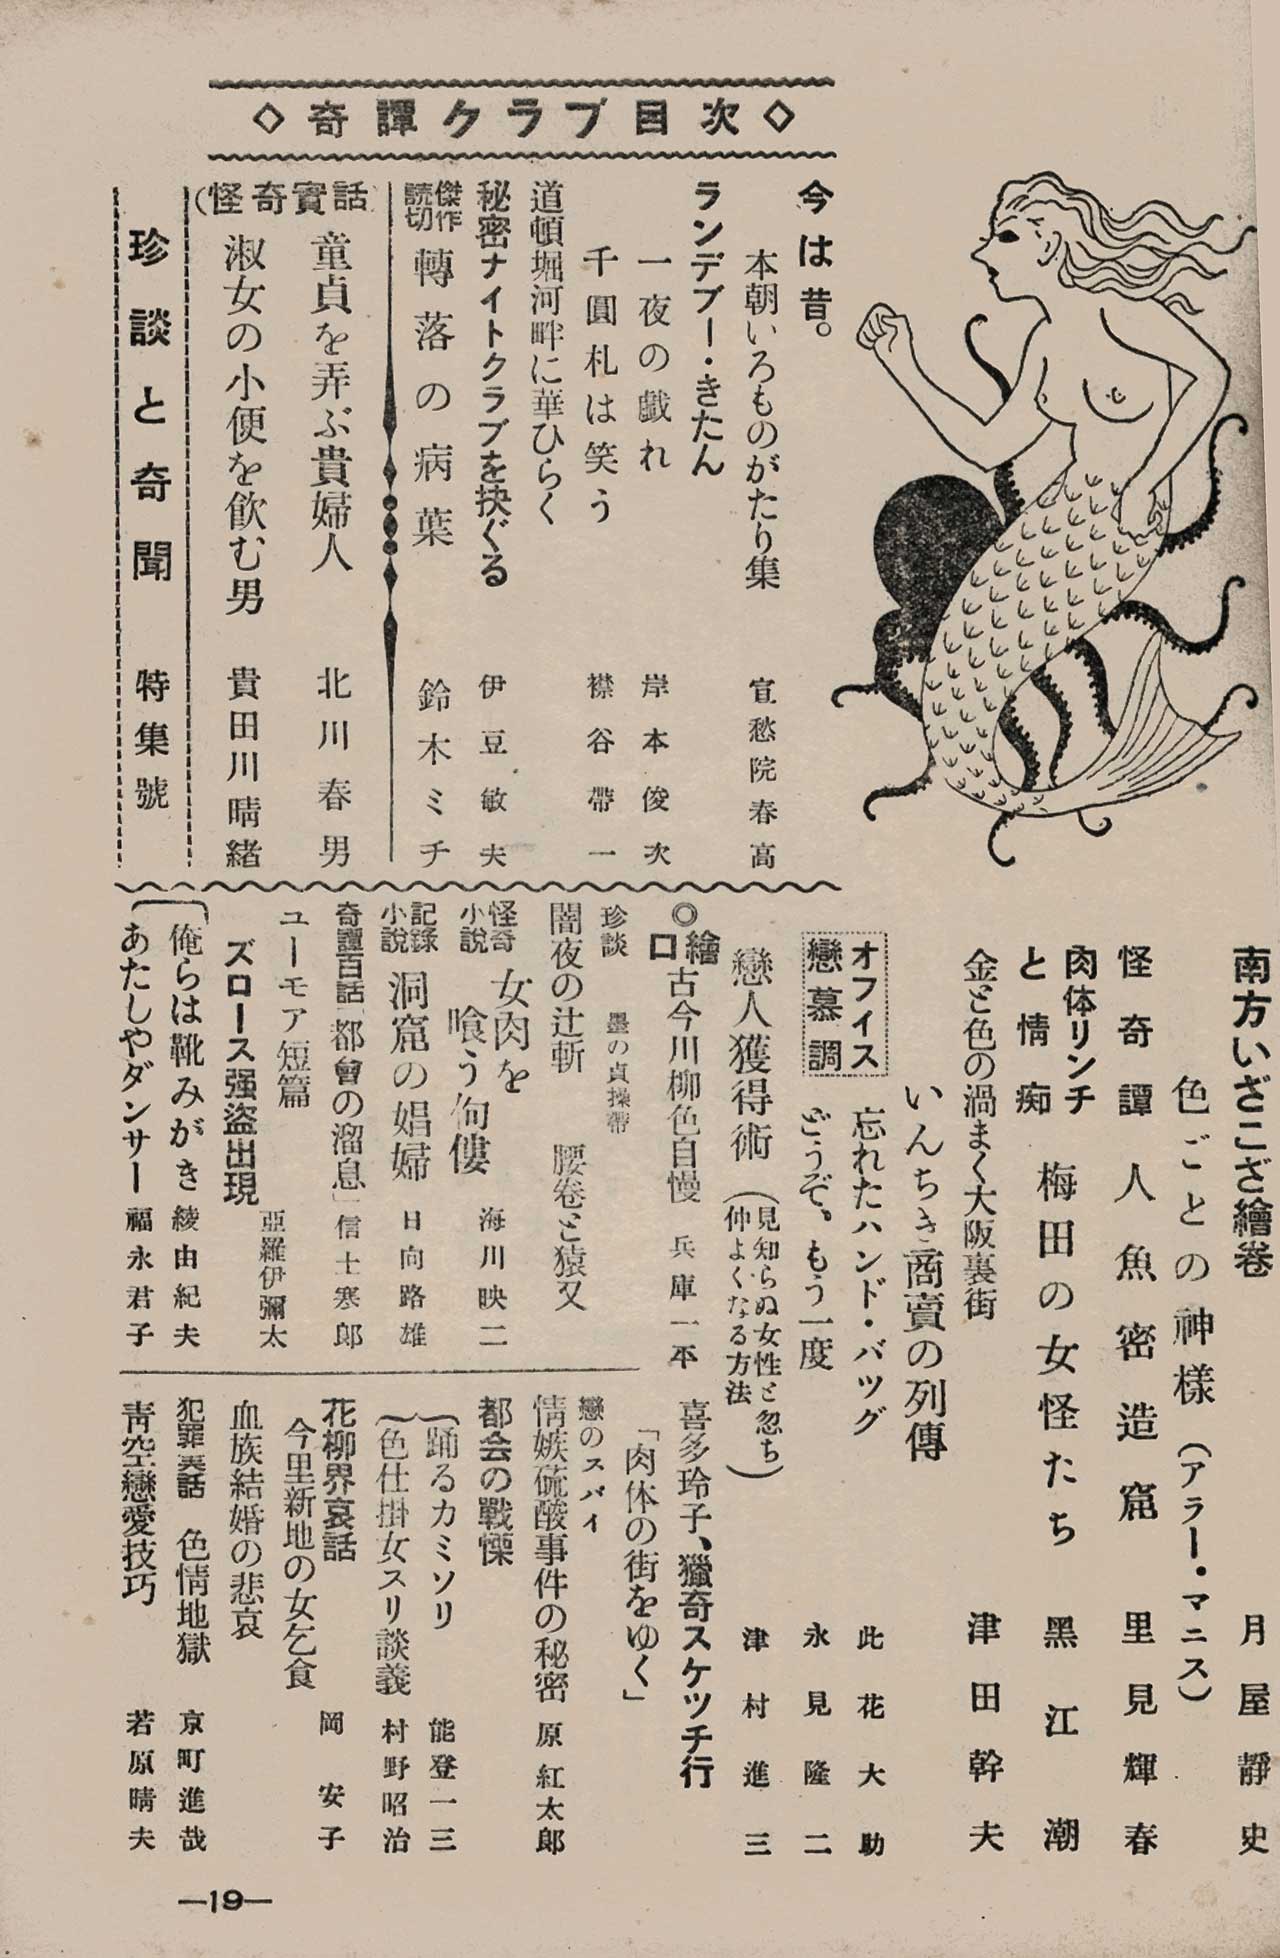 ◇奇譚クラブ目次◇
今は昔。
本朝いろものがたり集 宣愁院春高
ランデブー・きたん
一夜の戯れ 岸本俊次
千圓札は笑う 襟谷帶一
道頓堀河畔に華ひらく
秘密ナイトクラブを抉ぐる 伊豆敏夫
傑作読切 轉落の病葉 鈴木ミチ
(怪奇實話)
童貞を弄ぶ貴婦人 北川春男
淑女の小便を飲む男 貴田川晴緒
珍談と奇聞 特集號
南方いざこざ繪卷
色ごとの神様(アラー・マニス) 月屋靜史
怪奇譚 人魚密造窟 里見輝春
肉体リンチと情痴 梅田の女怪たち 黑江潮
金と色の渦まく大阪裏街
いんちき商賣の列傳 津田幹夫
オフイス戀慕調
忘れたハンド・バッグ 此花大助
どうぞ、もう一度 永見隆二
戀人獲得術(見知らぬ女性と忽ち仲よくなる方法) 津村進三
◎繪口 古今川柳色自慢 兵庫一平
珍談 墨の貞操帶
闇夜の辻斬 腰卷と猿又
怪奇小説 女肉を喰う佝僂 海川映二
記錄小説 洞窟の娼婦 日向路雄
奇譚百話「都會の溜息」 信士寒郎
ユーモア短篇
ズロース强盗出現 亞羅伊彌太
俺らは靴みがき 綾由紀夫
あたしやダンサー 福永君子
喜多玲子、獵奇スケッチ行
「肉体の街をゆく」
戀のスパイ
情嫉硫酸事件の秘密 原紅太郎
都会の戰慄
踊るカミソリ 能登一三
色仕掛女スリ談義 村野昭治
花柳界哀話
今里新地の女乞食 岡安子
血族結婚の悲哀
犯罪実話 色情地獄 京町進哉
靑空戀愛技巧 若原晴夫
—19—